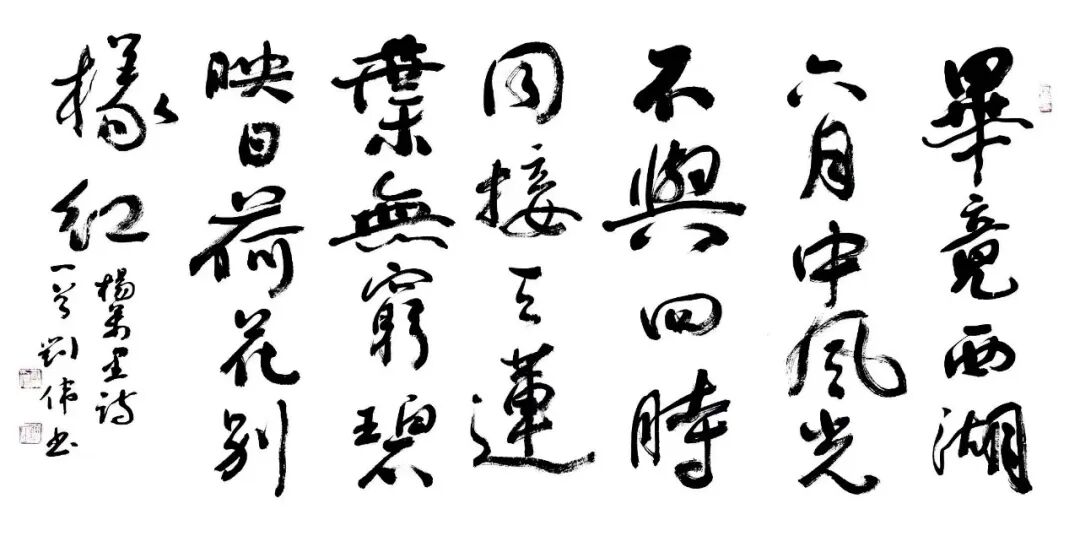 畢竟西湖
六月中風光
不與四時
同接天蓮
葉無窮碧
映日荷花别
樣红
楊萬里詩
一劉伟书